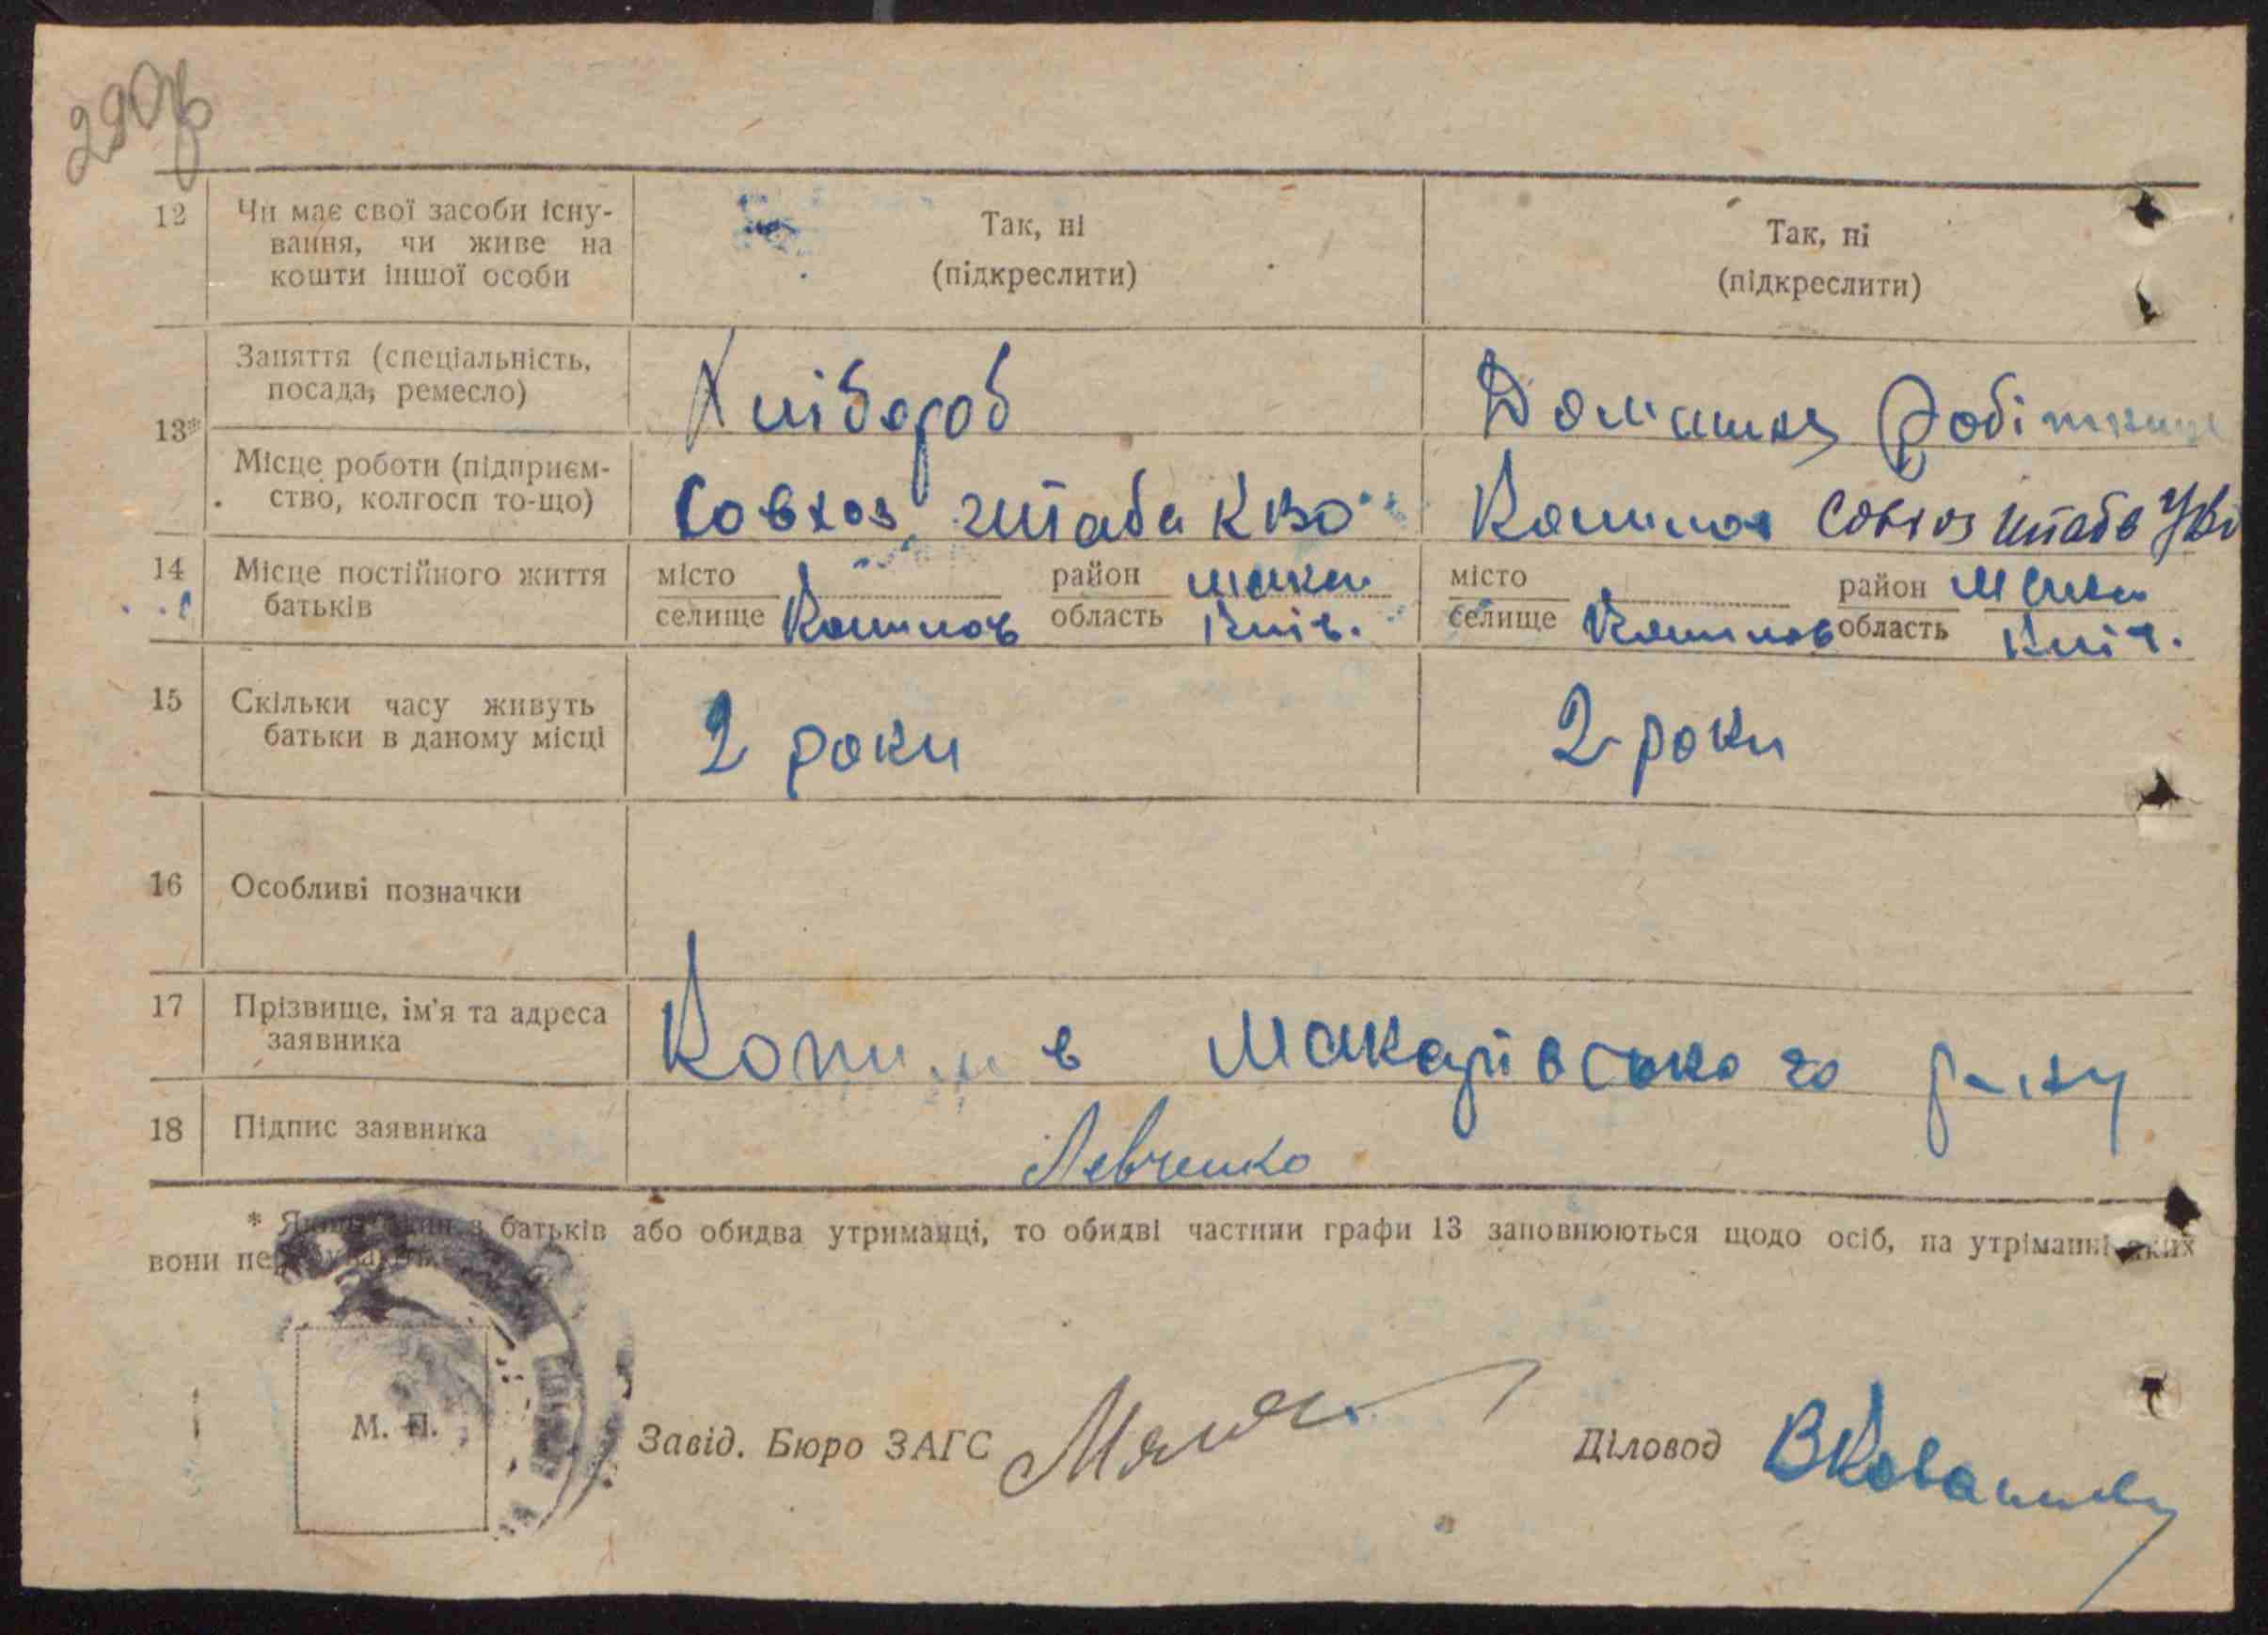 290
12 Чи має свої засоби існу-
вання, чи живе на
кошти іншої особи
Так, ні
(підкреслити)
Так, ні
(підкреслити)
13*
Заняття (спеціальність,
посада, ремесло)
Хлібороб
Домашня робітниця
Місце роботи (підприєм-
ство, колгосп то-що)
Совхоз штаба КВО
Копилов Совхоз штаба
14 Місце постійного життя
батьків
місто
селище Копилов
район Мака
область Київ.
місто
селище Копилов
район Мака
область Київ.
15 Скільки часу живуть
батьки в даному місці
2 роки
2 роки
16 Особливі позначки
17 Прізвище, ім'я та адреса
заявника
Копилов Макарівського р-ну
18 Підпис заявника
Левченко
* Якщо один з батьків або обидва утриманці, то обидві частини графи 13 заповнюються щодо осіб, на утріманні яких
вони перебувають.
М. П.
Завід. Бюро ЗАГС
Діловод